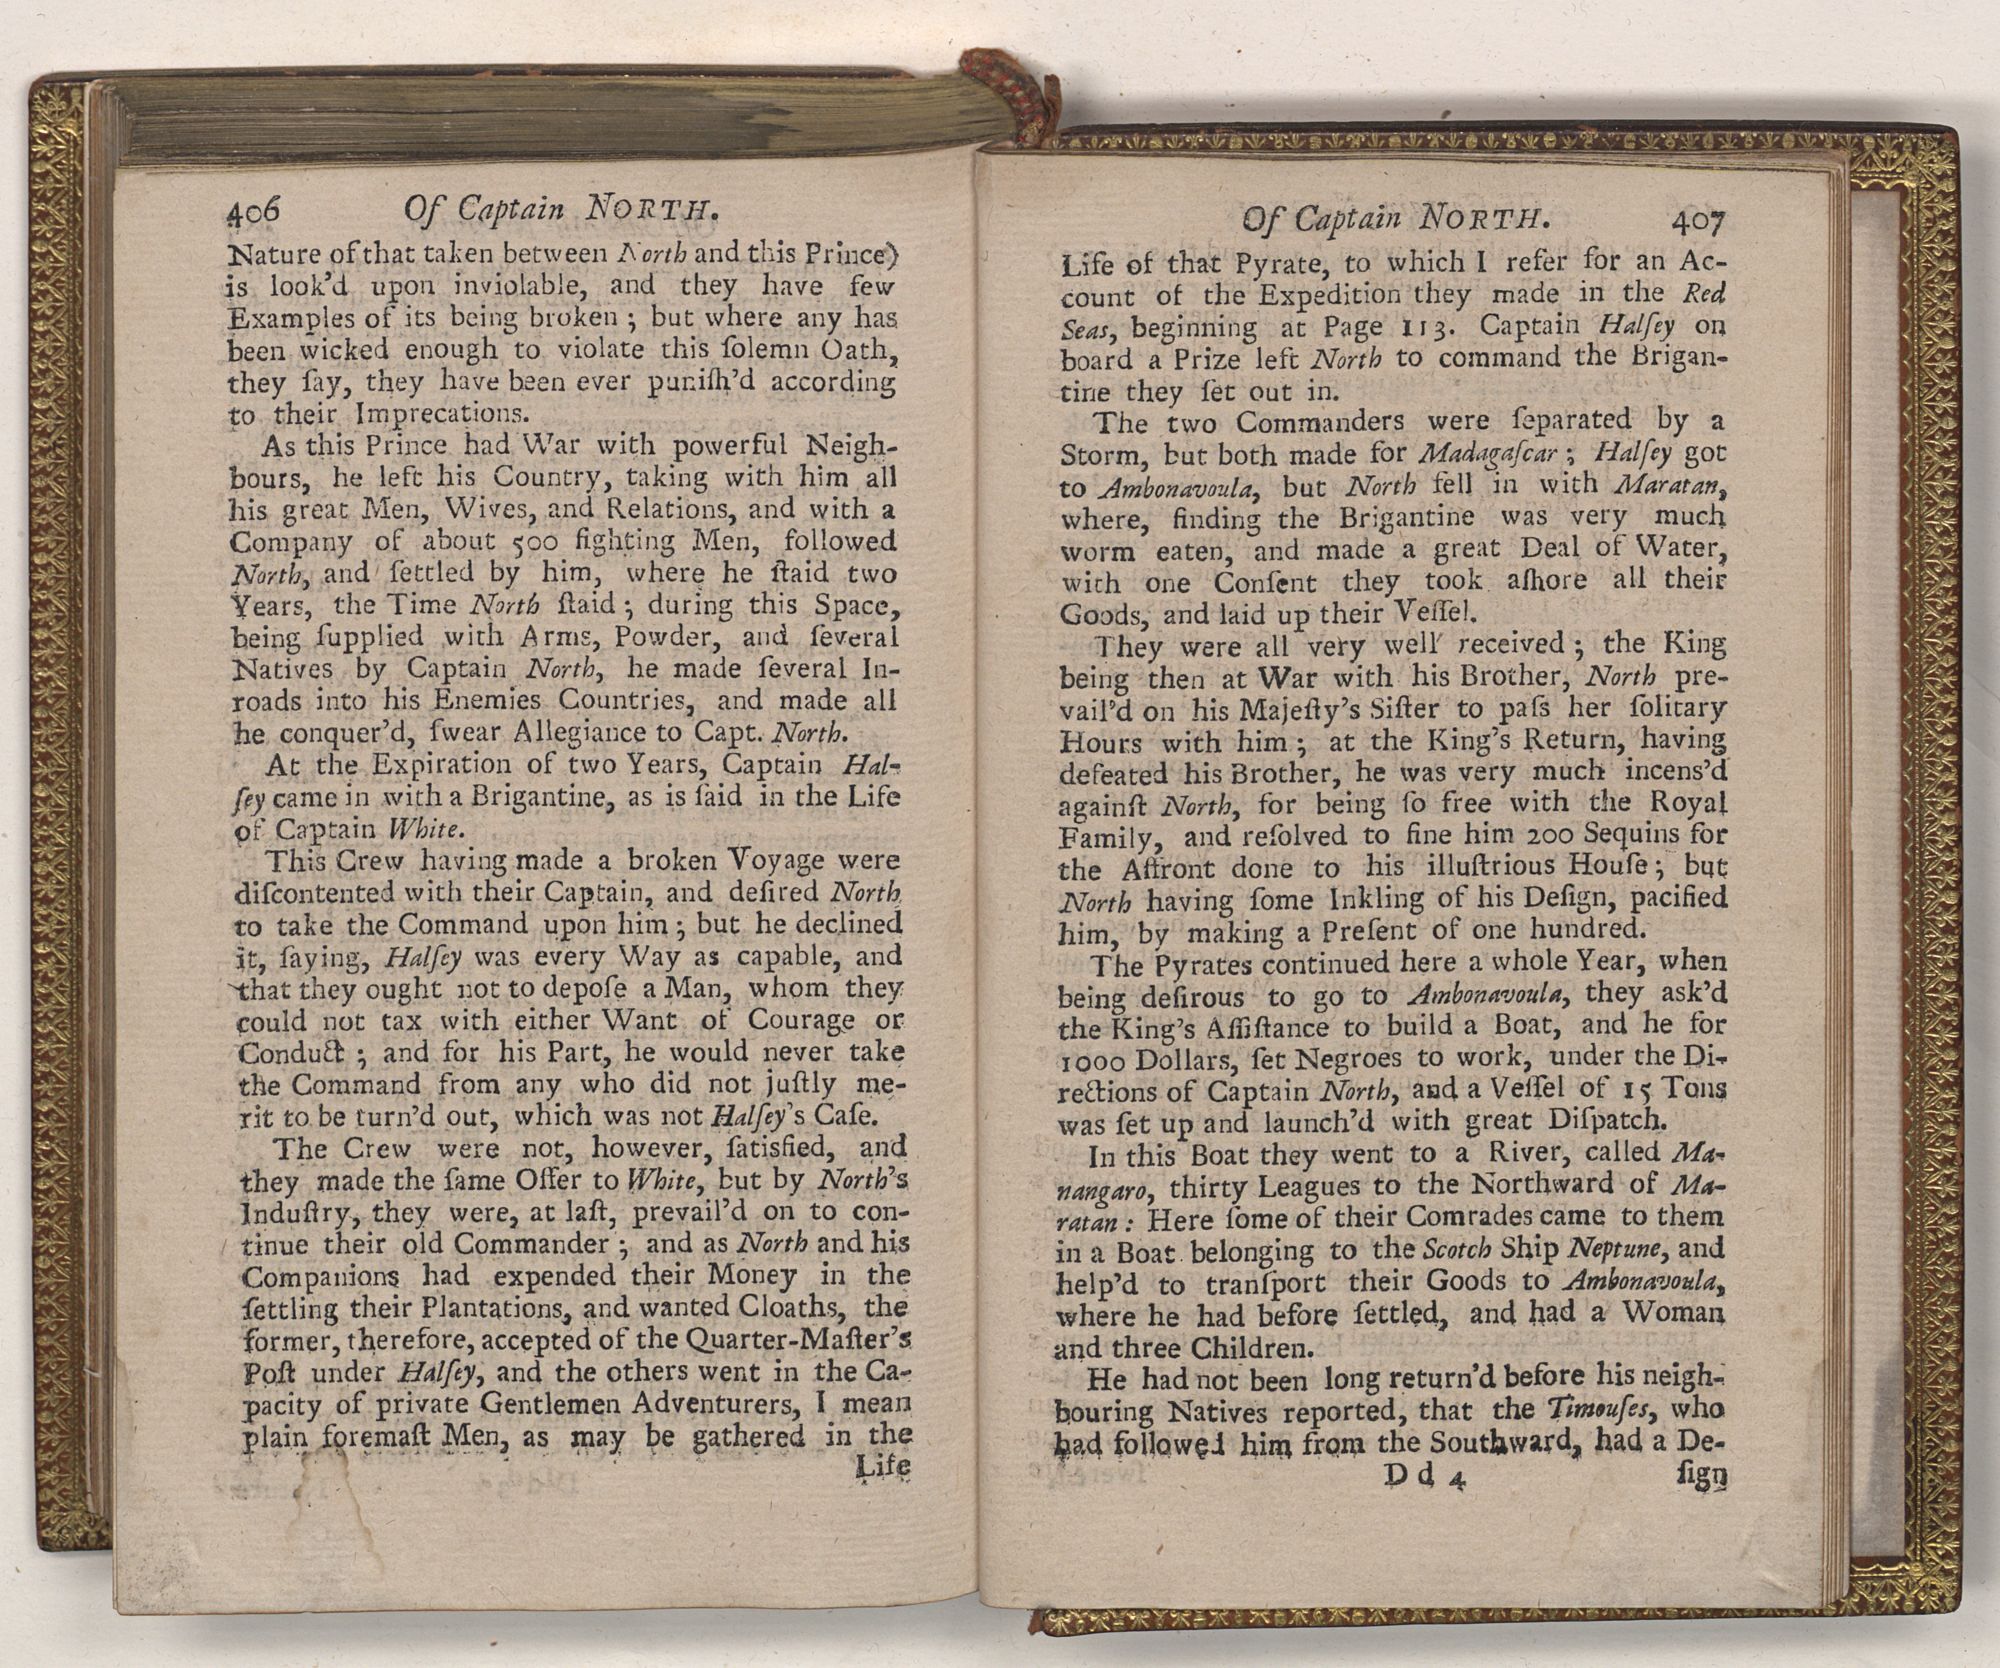 406 Of Captain NORTH.
Nature of that taken between North and this Prince)
is look'd upon inviolable, and they have few
Examples of its being broken ; but where any has
been wicked enough to violate this ſolemn Oath,
they ſay, they have been ever puniſh'd according
to their Imprecations.
As this Prince had War with powerful Neigh-
bours, he left his Country, taking with him all
his great Men, Wives, and Relations, and with a
Company of about 500 fighting Men, followed
North, and ſettled by him, where he ſtaid two
Years, the Time North ſtaid ; during this Space,
being ſupplied with Arms, Powder, and ſeveral
Natives by Captain North, he made ſeveral In-
roads into his Enemies Countries, and made all
he conquer'd, ſwear Allegiance to Capt. North.
At the Expiration of two Years, Captain Hal-
ſey came in with a Brigantine, as is ſaid in the Life
of Captain White.
This Crew having made a broken Voyage were
diſcontented with their Captain, and deſired North
to take the Command upon him ; but he declined
it, ſaying, Halſey was every Way as capable, and
that they ought not to depoſe a Man, whom they
could not tax with either Want of Courage or
Conduct ; and for his Part, he would never take
the Command from any who did not juſtly me-
rit to be turn'd out, which was not Halſey's Caſe.
The Crew were not, however, ſatisfied, and
they made the ſame Offer to White, but by North's
Induſtry, they were, at laſt, prevail'd on to con-
tinue their old Commander ; and as North and his
Companions had expended their Money in the
ſettling their Plantations, and wanted Cloaths, the
former, therefore, accepted of the Quarter-Maſter's
Poſt under Halſey, and the others went in the Ca-
pacity of private Gentlemen Adventurers, I mean
plain foremaſt Men, as may be gathered in the
Life
Of Captain NORTH. 407
Life of that Pyrate, to which I refer for an Ac-
count of the Expedition they made in the Red
Seas, beginning at Page 113. Captain Halſey on
board a Prize left North to command the Brigan-
tine they ſet out in.
The two Commanders were ſeparated by a
Storm, but both made for Madagaſcar ; Halſey got
to Ambonavoula, but North fell in with Maratan,
where, finding the Brigantine was very much
worm eaten, and made a great Deal of Water,
with one Conſent they took aſhore all their
Goods, and laid up their Veſſel.
They were all very well received ; the King
being then at War with his Brother, North pre-
vail'd on his Majeſty's Siſter to paſs her ſolitary
Hours with him ; at the King's Return, having
defeated his Brother, he was very much incens'd
againſt North, for being ſo free with the Royal
Family, and reſolved to fine him 200 Sequins for
the Affront done to his illuſtrious Houſe ; but
North having ſome Inkling of his Deſign, pacified
him, by making a Preſent of one hundred.
The Pyrates continued here a whole Year, when
being deſirous to go to Ambonavoula, they ask'd
the King's Aſſiſtance to build a Boat, and he for
1000 Dollars, ſet Negroes to work, under the Di-
rections of Captain North, and a Veſſel of 15 Tons
was ſet up and launch'd with great Diſpatch.
In this Boat they went to a River, called Ma-
nangaro, thirty Leagues to the Northward of Ma-
ratan : Here ſome of their Comrades came to them
in a Boat belonging to the Scotch Ship Neptune, and
help'd to tranſport their Goods to Ambonavoula,
where he had before ſettled, and had a Woman
and three Children.
He had not been long return'd before his neigh-
bouring Natives reported, that the Timouſes, who
had followed him from the Southward, had a De-
D d 4 ſign